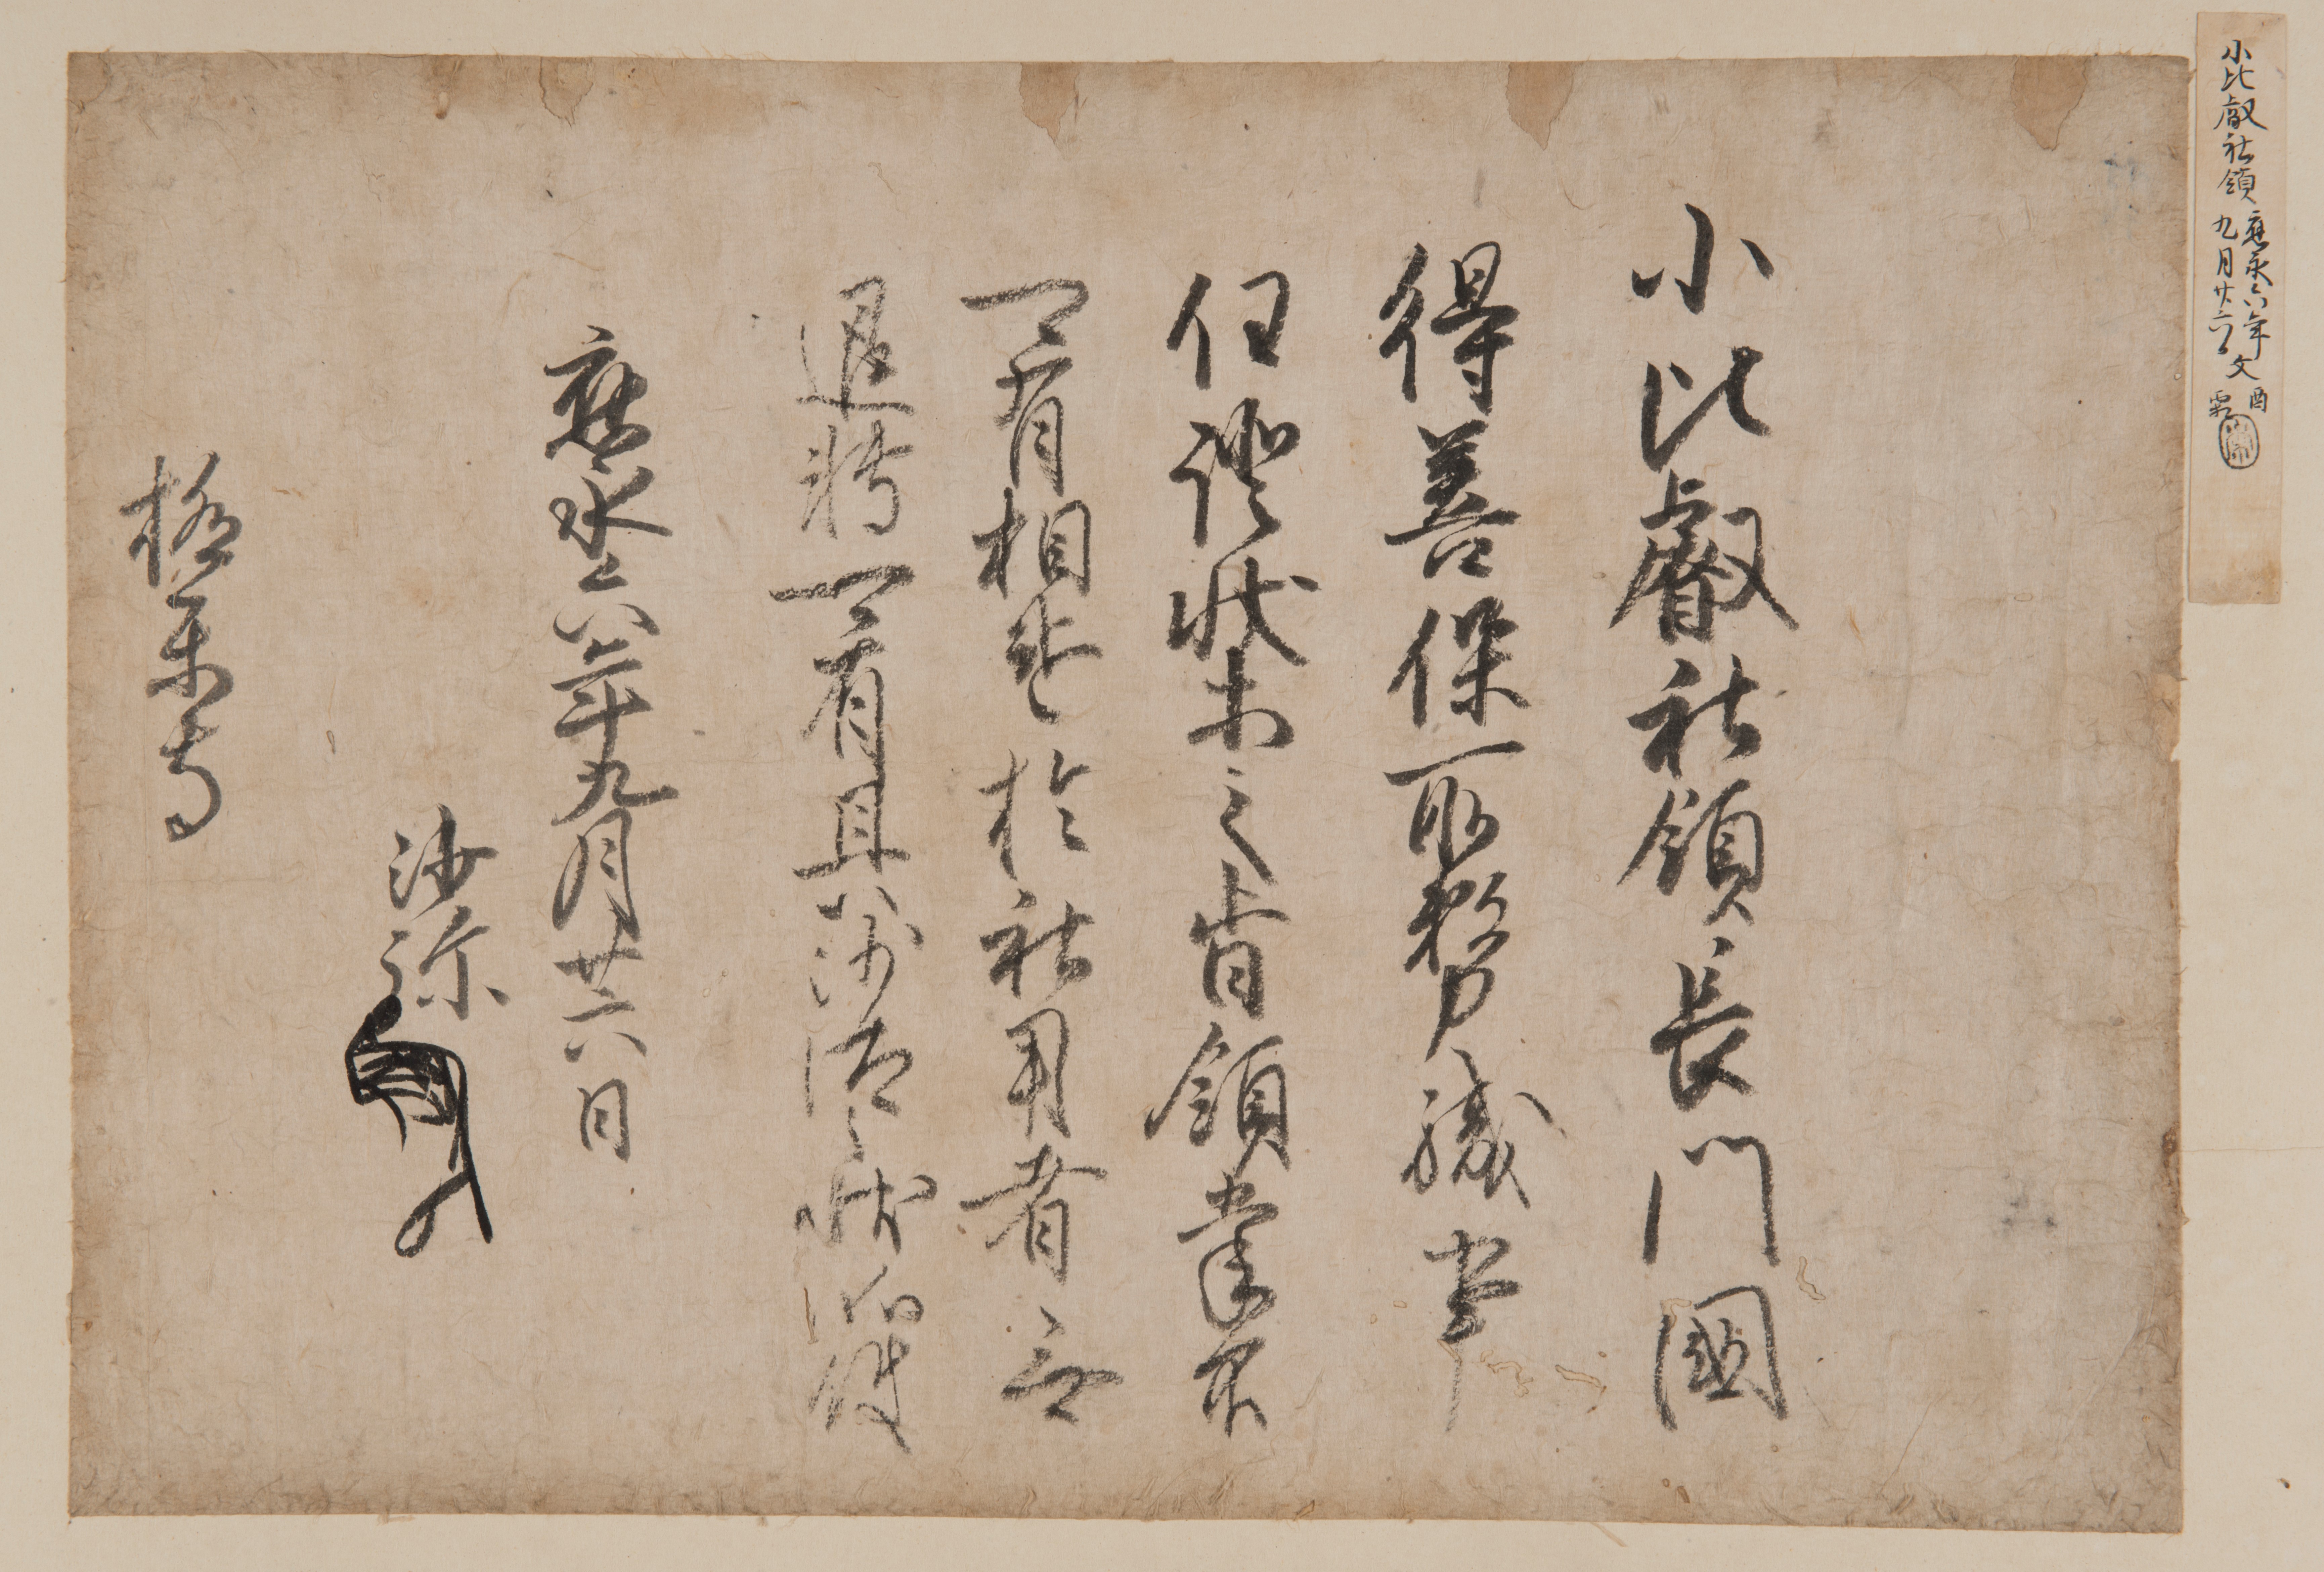 小比叡社領
應永六年
九月廿六日
文
酉
小比叡社領長門國
得善保所務職事
任證状等之旨領掌不
可有相違於社用者無
退轉可有其沙汰之状如件
應永六年九月廿六日
沙弥